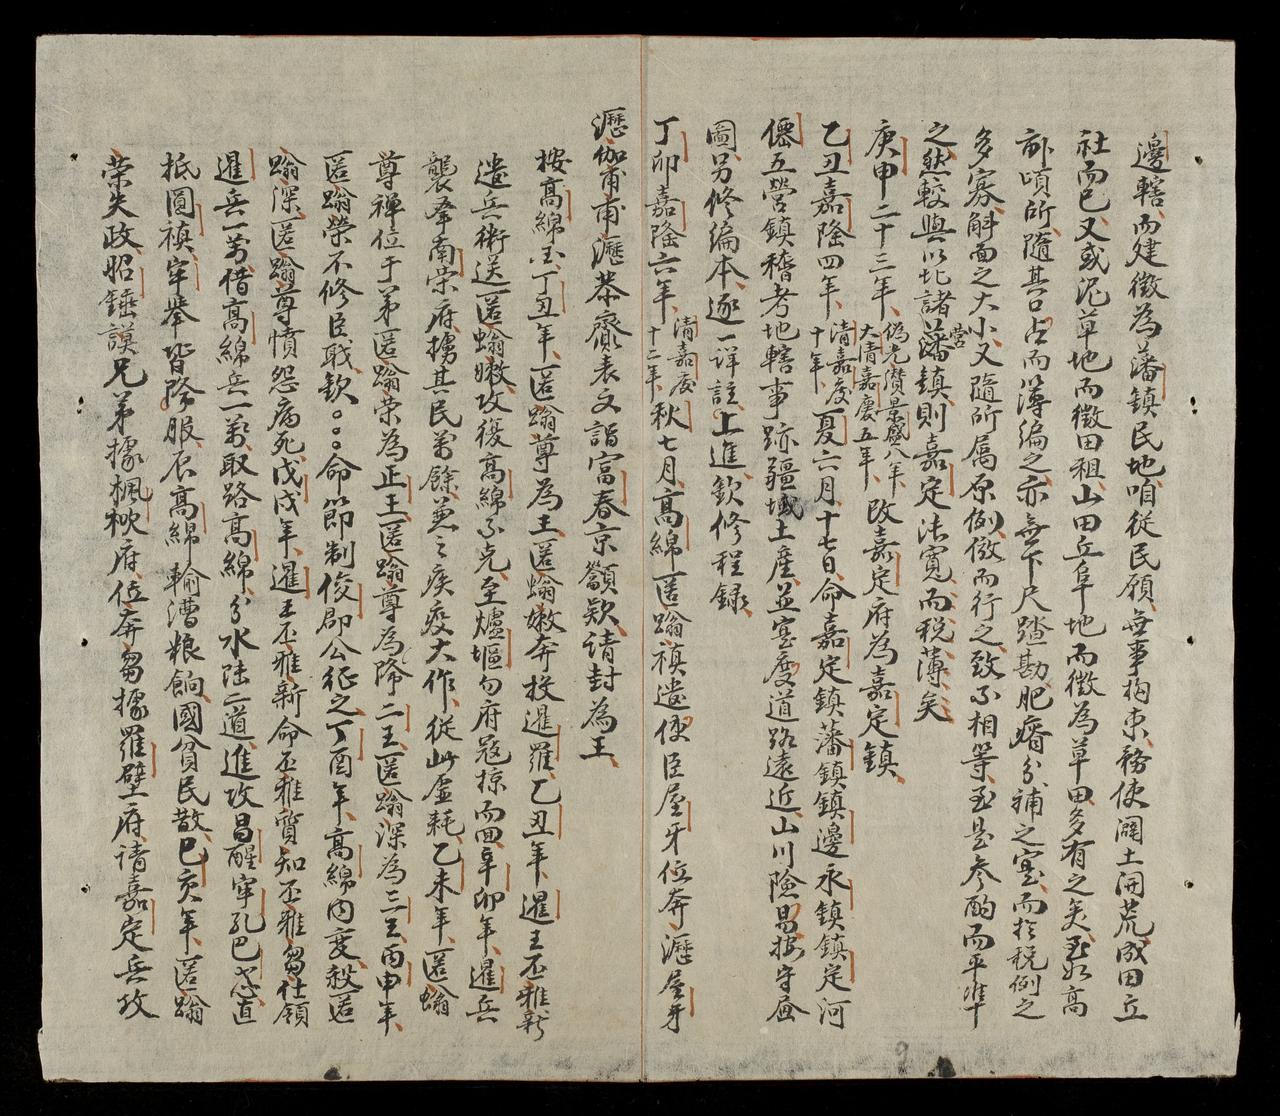 邊轄而建徵為藩鎮民地咱從民願無事拘束務使闢土開荒成田立
社而已又或泥草地而徵田租山田丘阜地而徵為草田多有之矣至如高
卟頃所隨其口占而薄編之亦無下尺踏勘肥瘠分補之寔而於税例之
多寡斛面之大小又隨所属原例倣而行之致不相等至是參酌而平準
之然較與以北諸營藩鎮則嘉定法寬而税薄矣
庚申二十三年偽光纉景盛八年大清嘉慶五年改嘉定府為嘉定鎮
乙丑嘉隆四年清嘉慶十年夏六月十七日命嘉定鎮藩鎮鎮邊永鎮鎮定河
僊五營鎮稽考地轄事跡疆域土産並寔度道路遠近山川險易按守画
圖另修編本逐一詳註上進欽修程録
丁卯嘉隆六年清嘉慶十二年秋七月高綿匿螉禛遣使臣屋牙位奔瀝屋牙
瀝伽甫甫瀝恭齎表文詣富春京顲欵請封為王
按高綿国丁丑年匿螉尊為王匿螉嫩奔投暹羅乙丑年暹王丕雅新
遣兵衛送匿螉嫩攻復高綿不克至爐塸勾府寇掠而回辛卯年暹兵
襲奪南荣府擄其民萬餘並之疾疫大作從此虚耗乙未年匿螉
尊禅位于弟匿螉荣為正王匿螉尊為降二王匿螉深為三王丙申年
匿螉荣不修臣職欽。。。命節制俊郡公征之丁酉年高綿内变殺匿
螉深匿螉尊憤怨病死戊戌年暹王丕雅新命丕雅質知丕雅芻仕領
暹兵一萬借高綿兵一萬取路高綿分水陆二道進攻昌醒牢孔巴忩直
抵圓禛牢舉皆降服辰高綿輸漕粮餉國貧民散巳亥年匿螉
荣失政昭錘謨兄弟據楓梑府位奔芻據羅壁府請嘉定兵攻